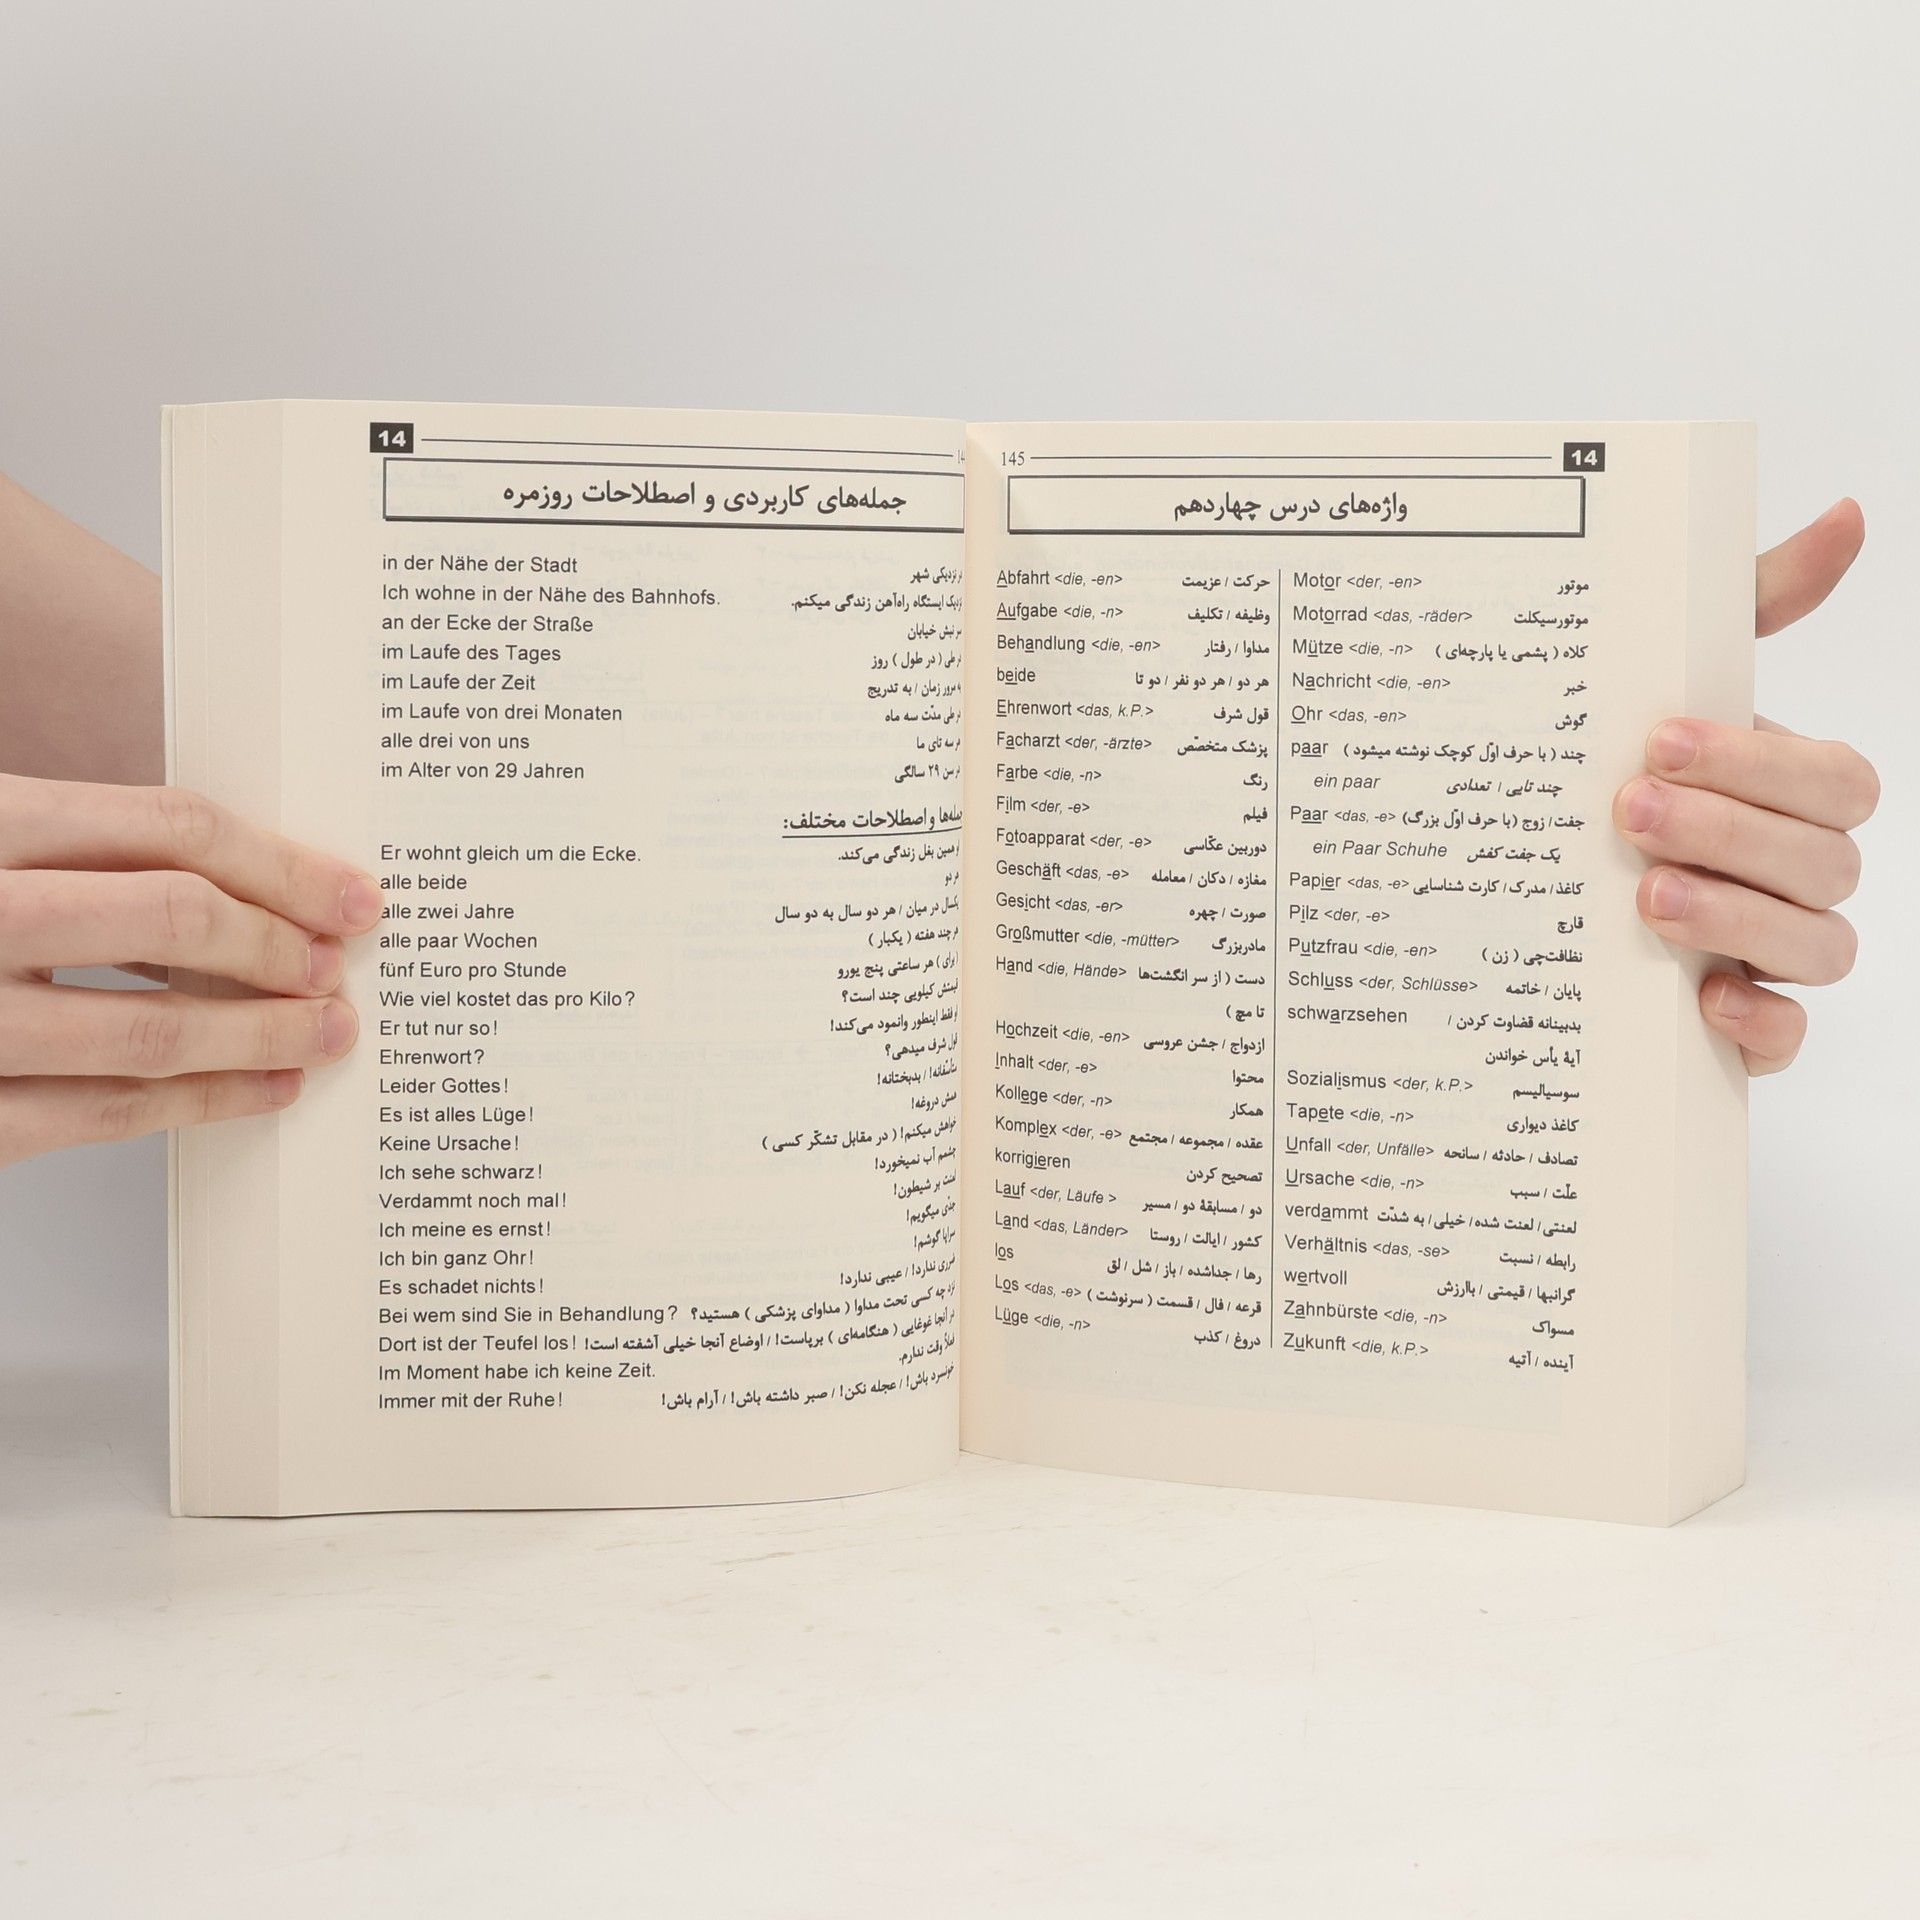 14
جمله‌های کاربردی و اصطلاحات روزمره
in der Nähe der Stadt نزدیکی شهر
Ich wohne in der Nähe des Bahnhofs. نزدیک ایستگاه راه‌آهن زندگی میکنم.
an der Ecke der Straße نبش خیابان
im Laufe des Tages طی ( در طول ) روز
im Laufe der Zeit مرور زمان / به تدریج
im Laufe von drei Monaten طی مدّت سه ماه
alle drei von uns سه تای ما
im Alter von 29 Jahren سن ۲۹ سالگی
و اصطلاحات مختلف:
Er wohnt gleich um die Ecke. همین بغل زندگی می‌کند.
alle beide
alle zwei Jahre یکسال در میان / هر دو سال به دو سال
alle paar Wochen هر چند هفته ( یکبار )
fünf Euro pro Stunde ( برای ) هر ساعتی پنج یورو
Wie viel kostet das pro Kilo? کیلویی چند است؟
Er tut nur so! فقط اینطور وانمود می‌کند!
Ehrenwort? قول شرف میدهی؟
Leider Gottes! متأسّفانه! / بدبختانه!
Es ist alles Lüge! دروغه!
Keine Ursache! خواهش میکنم! ( در مقابل تشکّر کسی )
Ich sehe schwarz! چشمم آب نمیخورد!
Verdammt noch mal! لعنت بر شیطون!
Ich meine es ernst! جدّی میگویم!
Ich bin ganz Ohr! سراپا گوشم!
Es schadet nichts! ضرری ندارد! / عیبی ندارد!
Bei wem sind Sie in Behandlung? نزد چه کسی تحت مداوا ( مداوای پزشکی ) هستید؟
Dort ist der Teufel los! در آنجا غوغایی ( هنگامه‌ای ) برپاست! / اوضاع آنجا خیلی آشفته است!
Im Moment habe ich keine Zeit. فعلاً وقت ندارم.
Immer mit der Ruhe! خونسرد باش! / عجله نکن! / صبر داشته باش! / آرام باش!
145 14
واژه‌های درس چهاردهم
Abfahrt <die, -en> حرکت / عزیمت
Aufgabe <die, -n> وظیفه / تکلیف
Behandlung <die, -en> مداوا / رفتار
beide هر دو / هر دو نفر / دو تا
Ehrenwort <das, k.P.> قول شرف
Facharzt <der, -ärzte> پزشک متخصّص
Farbe <die, -n> رنگ
Film <der, -e> فیلم
Fotoapparat <der, -e> دوربین عکّاسی
Geschäft <das, -e> مغازه / دکان / معامله
Gesicht <das, -er> صورت / چهره
Großmutter <die, -mütter> مادربزرگ
Hand <die, Hände> دست ( از سر انگشت‌ها
تا مچ )
Hochzeit <die, -en> ازدواج / جشن عروسی
Inhalt <der, -e> محتوا
Kollege <der, -n> همکار
Komplex <der, -e> عقده / مجموعه / مجتمع
korrigieren تصحیح کردن
Lauf <der, Läufe > دو / مسابقهٔ دو / مسیر
Land <das, Länder> کشور / ایالت / روستا
los رها / جداشده / باز / شل / لق
Los <das, -e> قرعه / فال / قسمت ( سرنوشت )
Lüge <die, -n> دروغ / کذب
Motor <der, -en> موتور
Motorrad <das, -räder> موتورسیکلت
Mütze <die, -n> کلاه ( پشمی یا پارچه‌ای )
Nachricht <die, -en> خبر
Ohr <das, -en> گوش
paar چند ( با حرف اوّل کوچک نوشته میشود )
ein paar چند تایی / تعدادی
Paar <das, -e> جفت / زوج (با حرف اوّل بزرگ)
ein Paar Schuhe یک جفت کفش
Papier <das, -e> کاغذ / مدرک / کارت شناسایی
Pilz <der, -e> قارچ
Putzfrau <die, -en> نظافت‌چی ( زن )
Schluss <der, Schlüsse> پایان / خاتمه
schwarzsehen بدبینانه قضاوت کردن /
آیهٔ یأس خواندن
Sozialismus <der, k.P.> سوسیالیسم
Tapete <die, -n> کاغذ دیواری
Unfall <der, Unfälle> تصادف / حادثه / سانحه
Ursache <die, -n> علّت / سبب
verdammt لعنتی / لعنت شده / خیلی / به شدّت
Verhältnis <das, -se> رابطه / نسبت
wertvoll گرانبها / قیمتی / باارزش
Zahnbürste <die, -n> مسواک
Zukunft <die, k.P.> آینده / آتیه